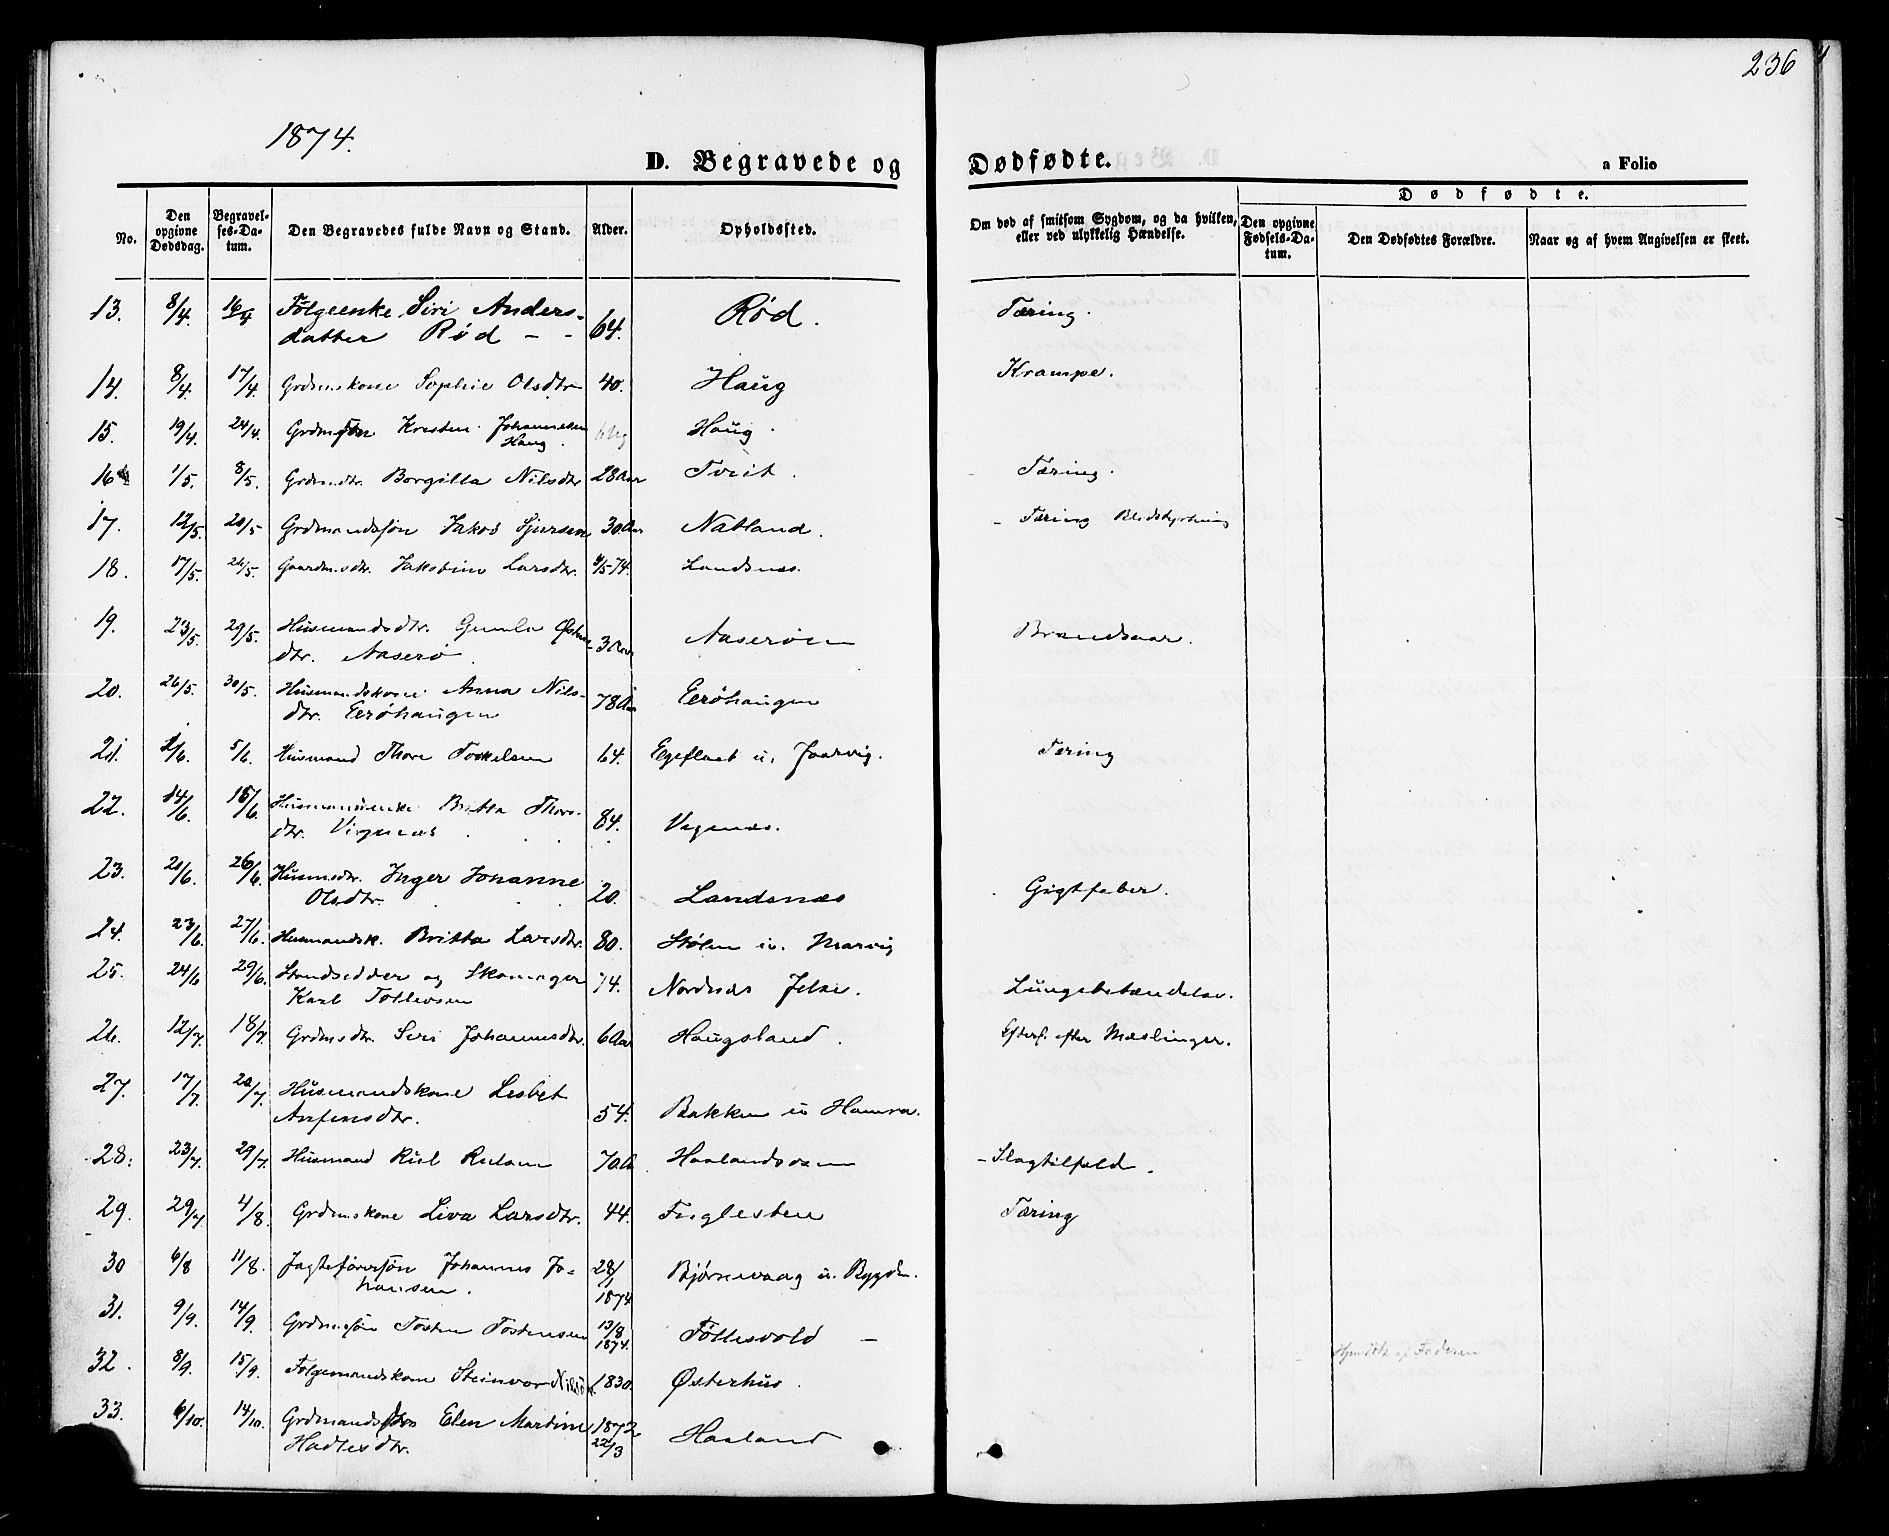 236
1874.
D. Begravede og Dødfødte. a Folio
No.
Den opgivne Dødsdag.
Begravelses-Datum.
Den Begravedes fulde Navn og Stand.
Alder.
Opholdssted.
Om død af smitsom Sygdom, og da hvilken, eller ved ulykkelig Hændelse.
Dødfødte.
Den opgivne Fødsels-Datum.
Den Dødfødtes Forældre.
Naar og af hvem Angivelsen er skeet.
13. 8/4. 16/4 Følgeenke Siri Anders- 64. Rød. Tæring.
datter Rød - -
14. 8/4. 17/4. Grdmskone Sophie Olsdtr 40. Haug Krampe.
15. 19/4. 24/4. Grdmsøn Kresten Johannesen Haug. Haug.
16 1/5. 8/5. Grdmdtr. Borgilla Nilsdtr 28 Aar Tveit. Tæring.
17. 12/5. 20/5 Grdmandssøn Jakob Sjursen 30 Aar Natland. Tæring Blodstyrtning
18. 17/5. 26/5. Gaardmsdtr. Jakobine Larsdtr. 4/5 74. Landsnæs.
19. 23/5. 29/5. Husmandsdtr. Gunla Østens- 3 Aar Aaserøen Brandsaar.
dtr. Aaserø.
20. 26/5. 30/5. Husmandskone Anna Nils- 78 Aar Eerøhaugen
dtr. Eerøhaugen
21. 2/6. 5/6. Husmand Thore Torkelsen 64. Egeflaat u. Jaarvig. Tæring
22. 14/6. Husmandsenke Britta Thors- 84. Vagenæs.
dtr. Vignæs
23. 20/6. 26/6. Husmsdtr. Inger Johanne 20. Landsnæs Gigtfeber.
Olsdtr.
24. 23/6. 27/6. Husmandsk. Britta Larsdtr. 80. Stølen u. Marvig
25. 24/6 29/6. Strandsidder og Skomager 74. Nordnæs Jelse. Lungebetændelse.
Karl Tollevsen
26. 12/7. 18/7. Grdmsdtr. Siri Johannesdtr. 6 Aar Haugsland. Efterf. efter Mæslinger.
27. 17/7. 20/7. Husmandskone Lisbet 54. Bakken u Hamra.
Anfinsdtr.
28. 23/7. 29/7. Husmand Kiel Kielsen 70 A. Haalandsosen - Slagtilfald.
29. 29/7. 4/8. Grdmskone Liva Larsdtr. 44. Fuglesten Tæring
30 6/8 11/8. Jagteførersøn Johannes Jo- 28/1 1874 Bjørnevaag u. Bygden.
hansen.
31. 9/9. 14/9 Grdmsøn Tosten Tostensen 13/8 1874. Tøttesvold -
32. 8/9. 15/9. Følgemandskone Steinvor Nilsdtr. 1830. Østerhus. Hjemdøbt af Faderen
33. 6/10. 14/10. Grdmands Elen Martine 1872 22/3 Haaland
Hadlesdtr.